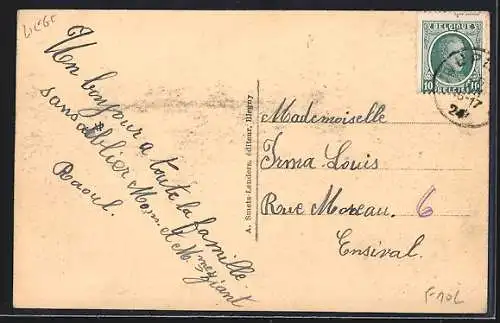 LIEGE
Un bonjour a toute la famille
sans oublier Mom. & M.
Raoul.
A. Smets-Lenders, éditeur, Blegny
BELGIQUE
10 BELGIE 10
-17
24
Mademoiselle
Irma Louis
Rue Moreau. 6
Ensival.